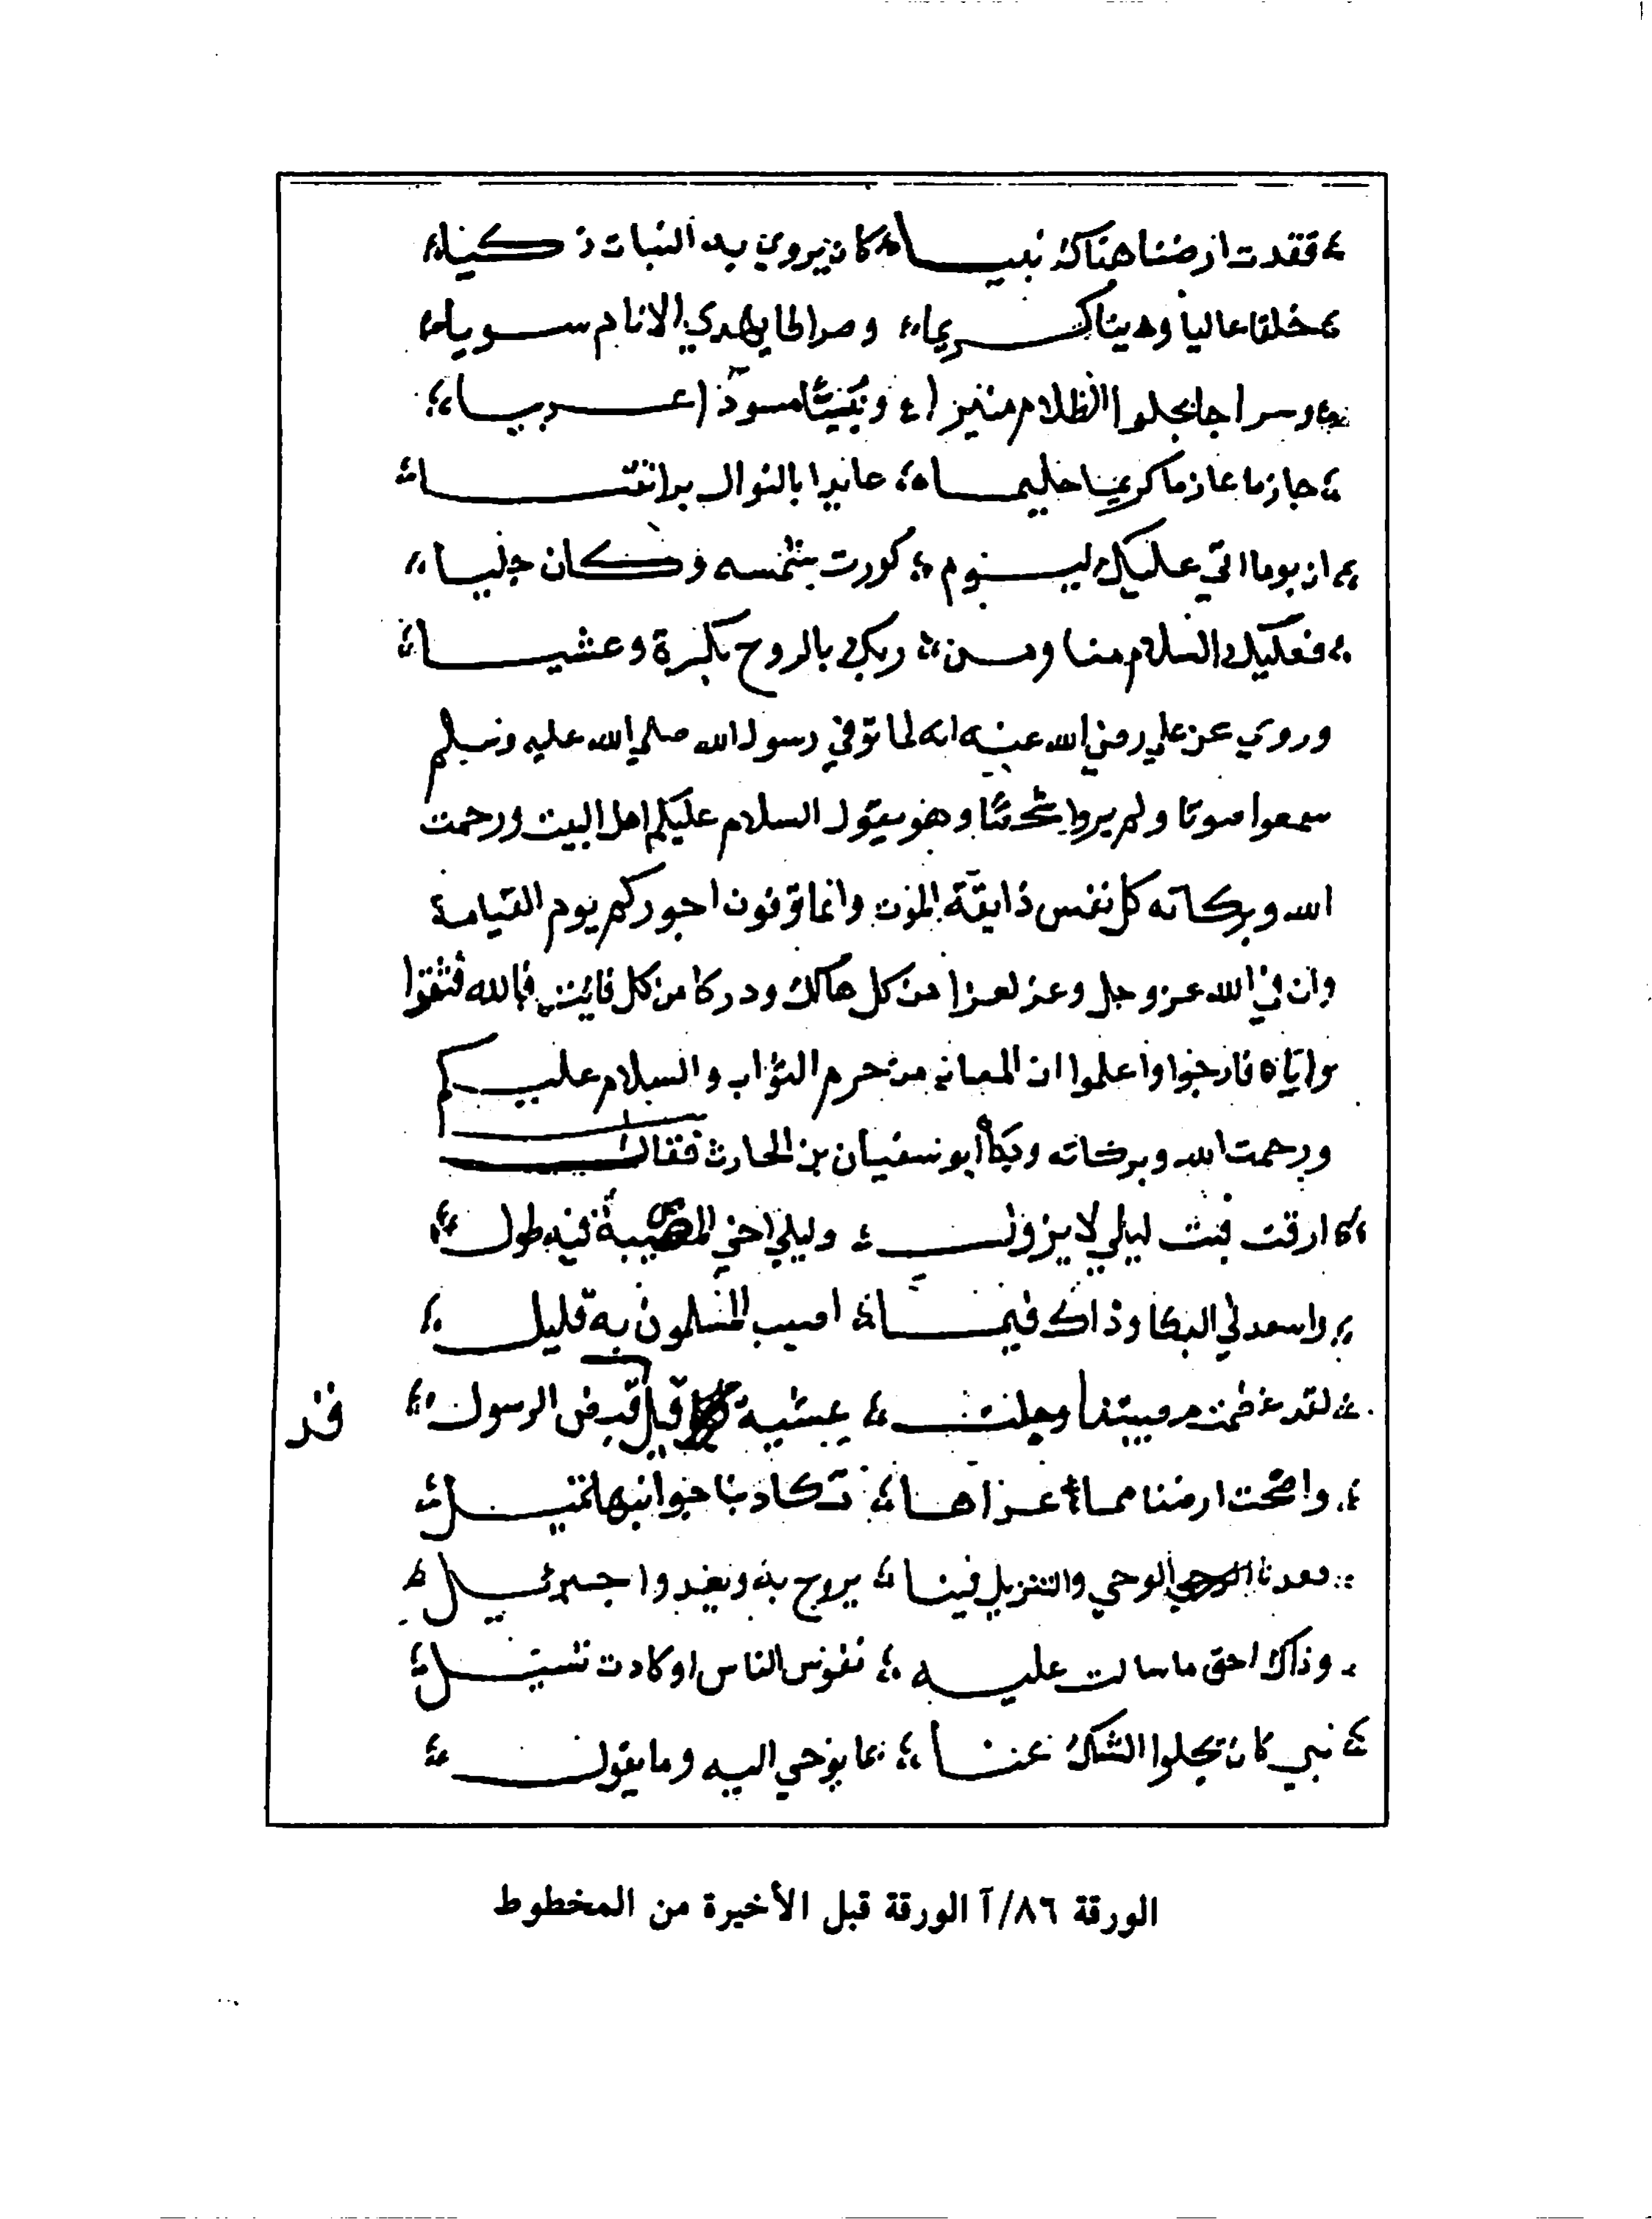 فقدت ارضنا هناك نبيا كان يروي به النبات زكيا
خلقا عاليا ودينا كريما وصراطا يهدي الانام سويا
وسراجا يجلوا الظلام منيرا ونبيئا مسودا عربيا
حازما عازما كريما حليما عايدا بالنوال برا تقيا
ان يوما اتي عليك ليوم كورت شمسه وكان جليا
فعليك السلام منا ومن ربك بالروح بكرة وعشيا
وروي عن علي رضي الله عنه انه لما توفي رسول الله صلي الله عليه وسلم
سمعوا صوتا ولم يروا شخصا وهو يقول السلام عليكم اهل البيت ورحمت
الله وبركاته كل نفس ذايقة الموت وانما توفون اجوركم يوم القيامة
وان في الله عز وجل وعز لعزا من كل هالك ودركا من كل فايت فبالله فثقوا
واياه فارجوا واعلموا ان المصاب من حرم الثواب والسلام عليكم
ورحمت الله وبركاته وبكا أبو سفيان بن الحارث فقال
ارقت فبت ليلي لا يزول وليل اخي المصيبة فيه طول
واسعدني البكا وذاك فيما اصيب المسلمون به قليل
لقد عظمت مصيبتنا وجلت عشية قيل قد قبض الرسول
قد
واضحت ارضنا مما عراها تكاد بنا جوانبها تميل
فقدنا الوحي والتنزيل فينا يروح به ويغدوا جبرئيل
وذاك احق ما سالت عليه نفوس الناس او كادت تسيل
نبي كان يجلوا الشك عنا بما يوحي اليه وما يقول
الورقة ٨٦/آ الورقة قبل الأخيرة من المخطوط